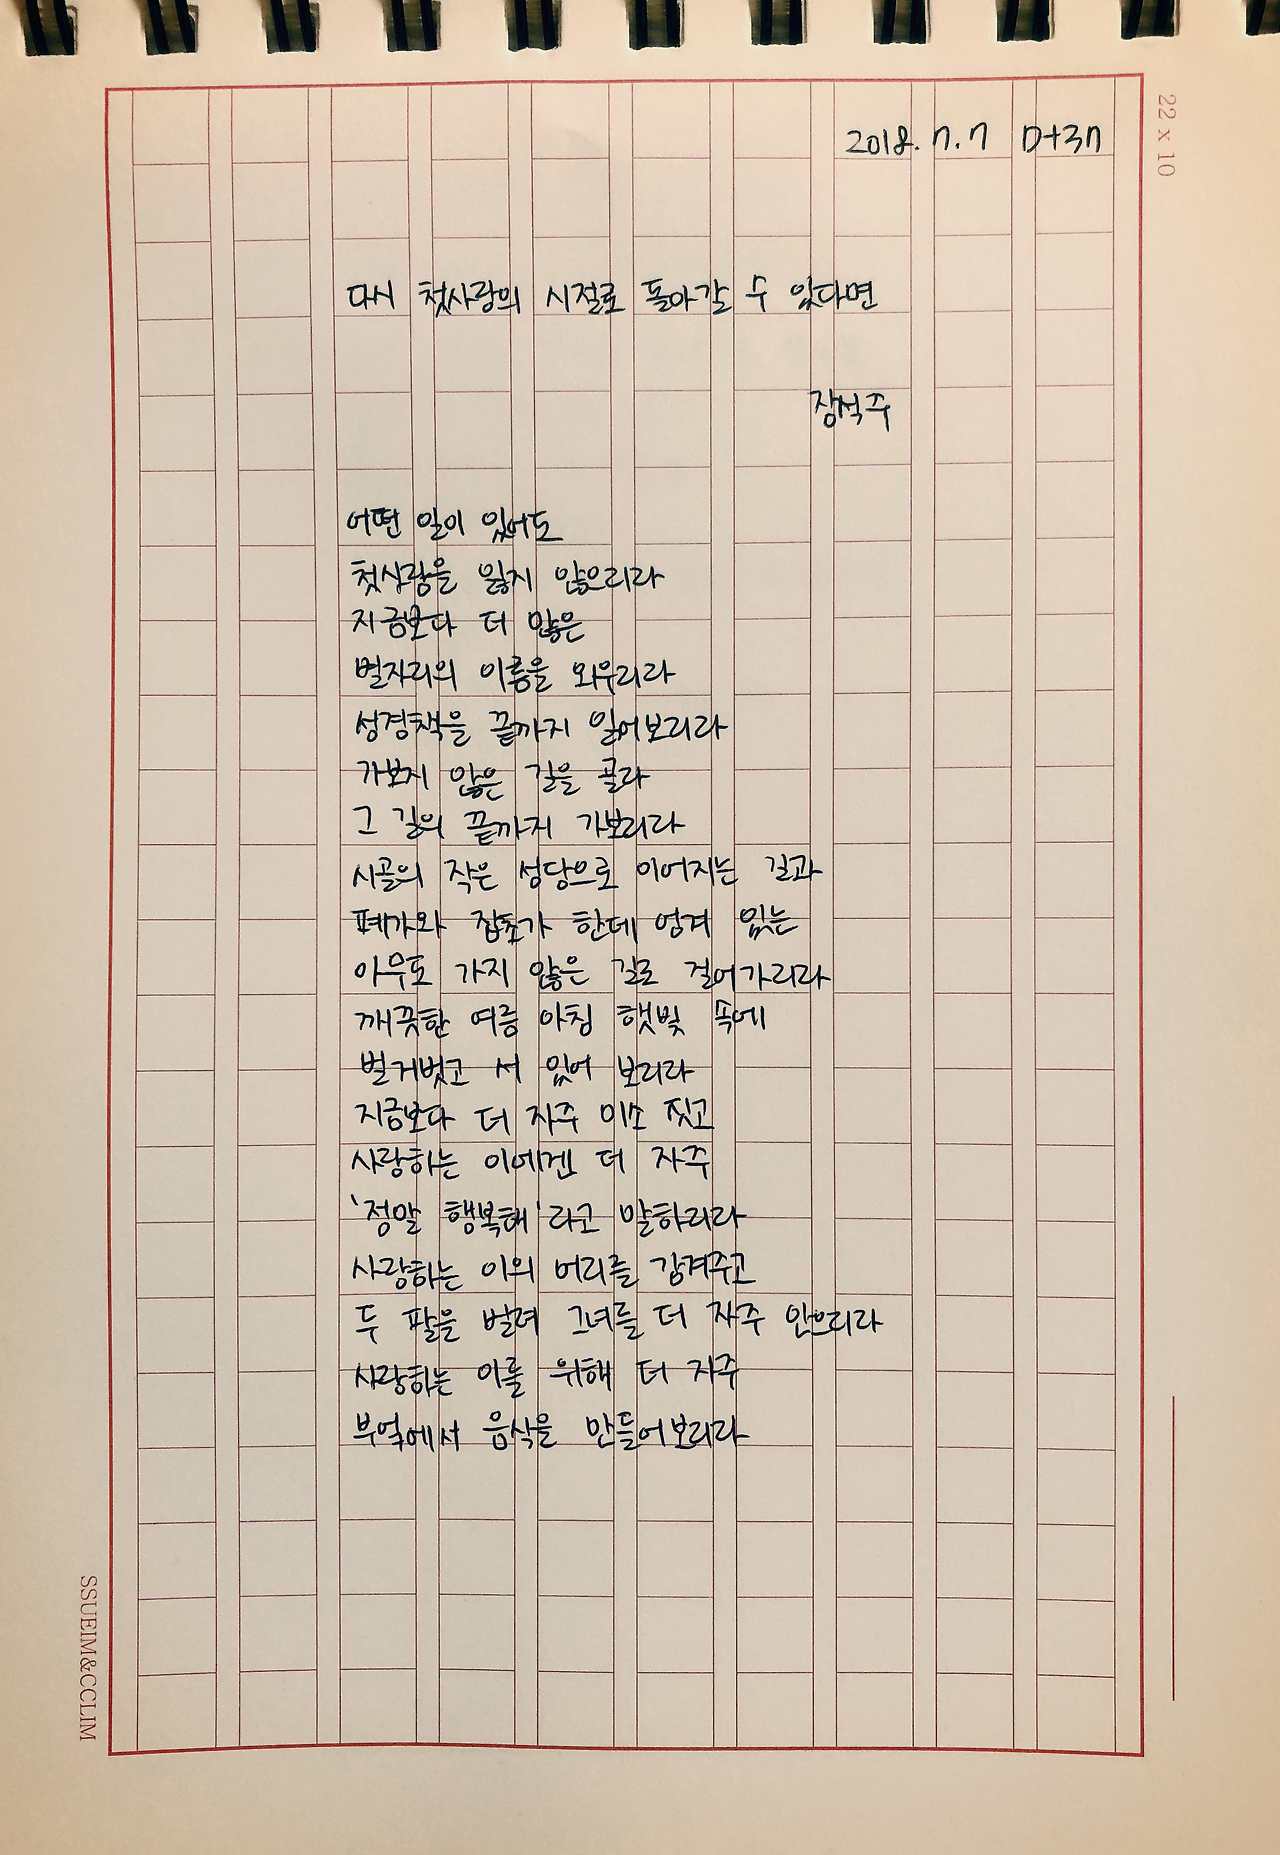 22 x 10
2018. 7. 7 D+37
다시 첫사랑의 시절로 돌아갈 수 있다면
장석주
어떤 일이 있어도
첫사랑을 잃지 않으리라
지금보다 더 많은
별자리의 이름을 외우리라
성경책을 끝까지 읽어보리라
가보지 않은 길을 골라
그 길의 끝까지 가보리라
시골의 작은 성당으로 이어지는 길과
폐가와 잡초가 한데 엉겨 있는
아무도 가지 않은 길로 걸어가리라
깨끗한 여름 아침 햇빛 속에
벌거벗고 서 있어 보리라
지금보다 더 자주 미소 짓고
사랑하는 이에겐 더 자주
'정말 행복해'라고 말하리라
사랑하는 이의 머리를 감겨주고
두 팔을 벌려 그녀를 더 자주 안으리라
사랑하는 이를 위해 더 자주
부엌에서 음식을 만들어보리라
SSUEIM&CCLIM